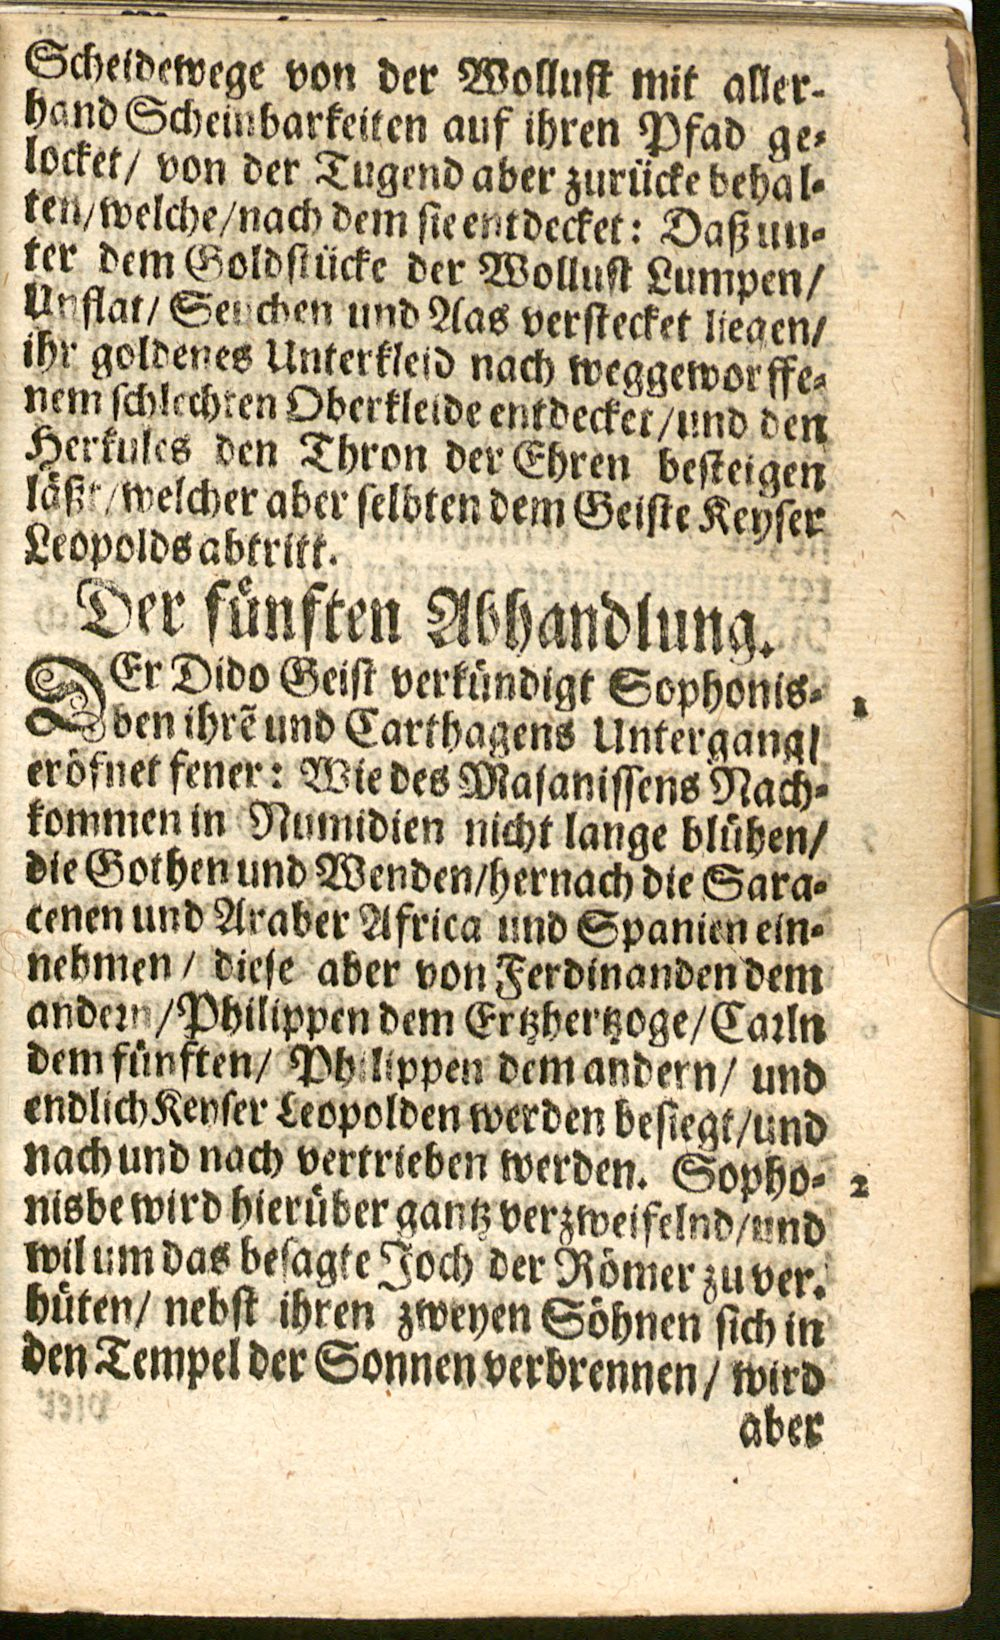 Scheidewege von der Wollust mit aller-
hand Scheinbarkeiten auf ihren Pfad ge-
locket/ von der Tugend aber zurücke behal-
ten/welche/nach dem sie entdecket: Daß un-
ter dem Goldstücke der Wollust Lumpen/
Unflat/ Seuchen und Aas verstecket liegen/
ihr goldenes Unterkleid nach weggeworffe-
nem schlechten Oberkleide entdecket/und den
Herkules den Thron der Ehren besteigen
läßt/welcher aber selbten dem Geiste Keyser
Leopolds abtritt.
Der fünften Abhandlung.
DEr Dido Geist verkündigt Sophonis- 1
ben ihrẽ und Carthagens Untergang/
eröfnet fener: Wie des Masanissens Nach-
kommen in Numidien nicht lange blühen/
die Gothen und Wenden/hernach die Sara-
cenen und Araber Africa und Spanien ein-
nehmen/ diese aber von Ferdinanden dem
andern/Philippen dem Ertzhertzoge/Carln
dem fünften/ Philippen dem andern/ und
endlich Keyser Leopolden werden besiegt/und
nach und nach vertrieben werden. Sopho- 2
nisbe wird hierüber gantz verzweifelnd/und
wil um das besagte Joch der Römer zu ver.
hüten/ nebst ihren zweyen Söhnen sich in
den Tempel der Sonnen verbrennen/ wird
aber